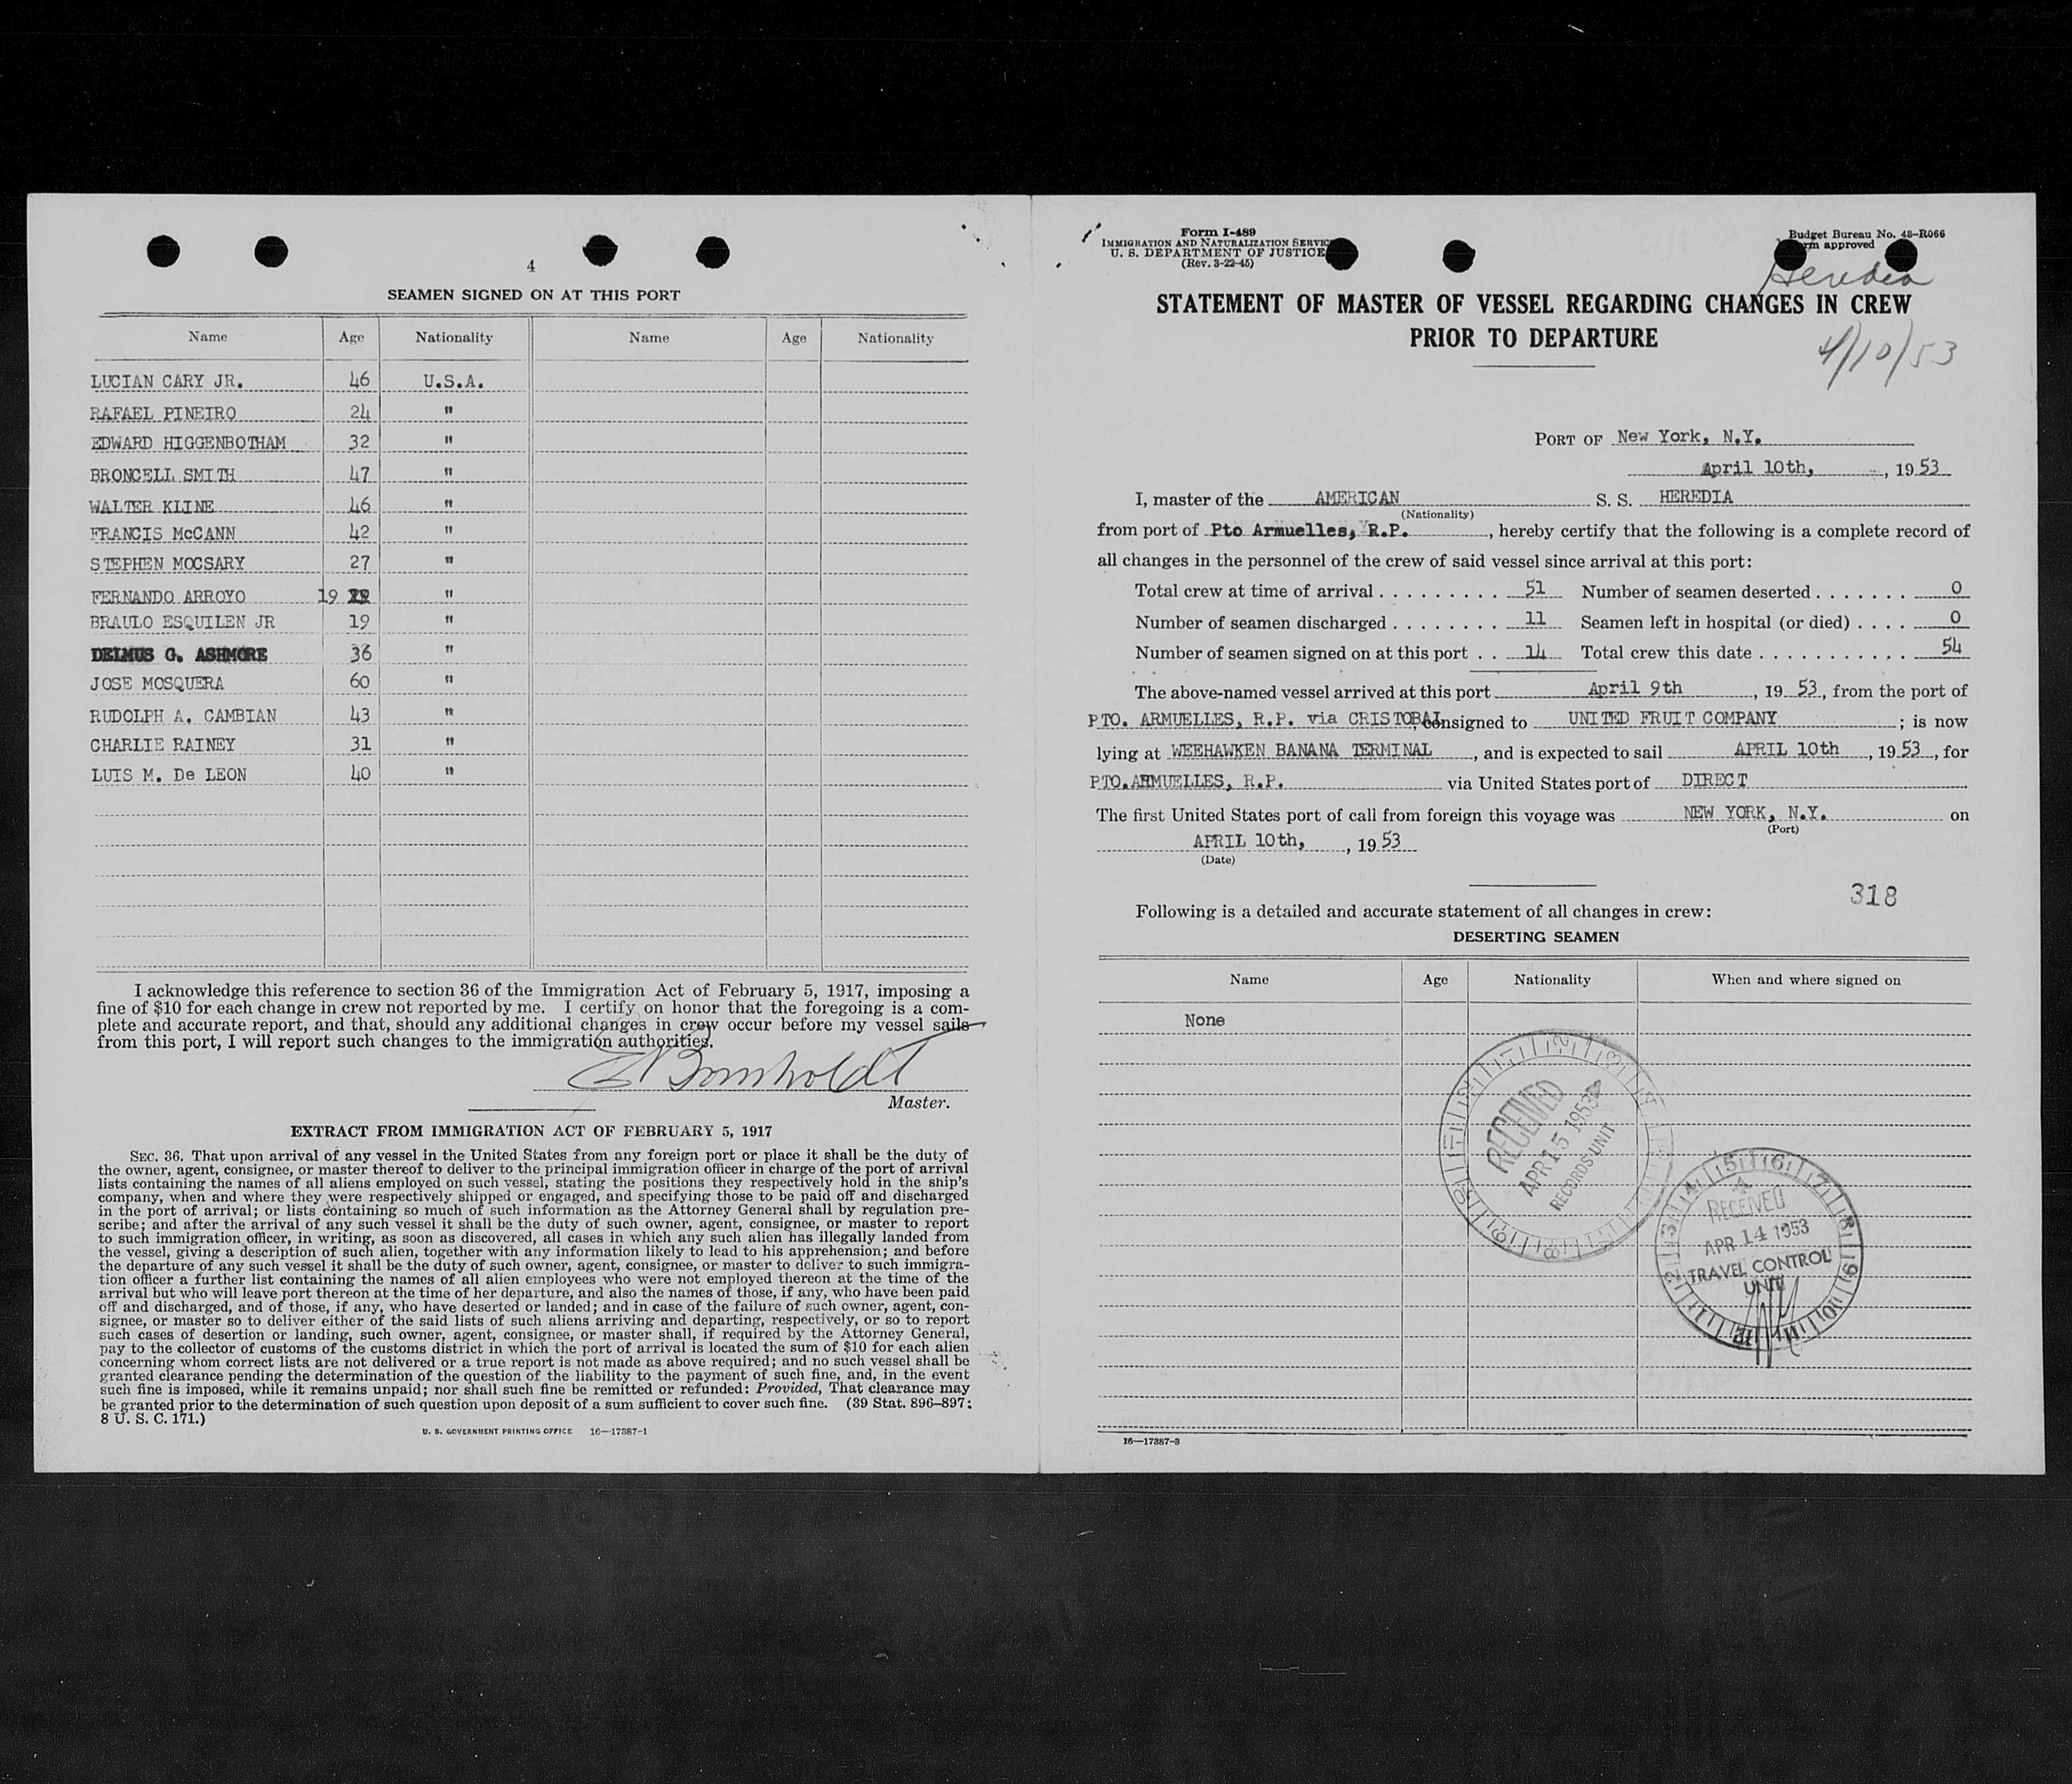 4
SEAMEN SIGNED ON AT THIS PORT
Name Age Nationality Name Age Nationality
LUCIAN CARY JR. 46 U.S.A.
RAFAEL PINEIRO 24 "
EDWARD HIGGENBOTHAM 32 "
BRONCELL SMITH 47 "
WALTER KLINE 46 "
FRANCIS McCANN 42 "
STEPHEN MOCSARY 27 "
FERNANDO ARROYO 19 "
BRAULO ESQUILEN JR 19 "
DELMUS G. ASHMORE 36 "
JOSE MOSQUERA 60 "
RUDOLPH A. CAMBIAN 43 "
CHARLIE RAINEY 31 "
LUIS M. De LEON 40 "
I acknowledge this reference to section 36 of the Immigration Act of February 5, 1917, imposing a
fine of $10 for each change in crew not reported by me. I certify on honor that the foregoing is a com-
plete and accurate report, and that, should any additional changes in crew occur before my vessel sails
from this port, I will report such changes to the immigration authorities.
Master.
EXTRACT FROM IMMIGRATION ACT OF FEBRUARY 5, 1917
SEC. 36. That upon arrival of any vessel in the United States from any foreign port or place it shall be the duty of
the owner, agent, consignee, or master thereof to deliver to the principal immigration officer in charge of the port of arrival
lists containing the names of all aliens employed on such vessel, stating the positions they respectively hold in the ship's
company, when and where they were respectively shipped or engaged, and specifying those to be paid off and discharged
in the port of arrival; or lists containing so much of such information as the Attorney General shall by regulation pre-
scribe; and after the arrival of any such vessel it shall be the duty of such owner, agent, consignee, or master to report
to such immigration officer, in writing, as soon as discovered, all cases in which any such alien has illegally landed from
the vessel, giving a description of such alien, together with any information likely to lead to his apprehension; and before
the departure of any such vessel it shall be the duty of such owner, agent, consignee, or master to deliver to such immigra-
tion officer a further list containing the names of all alien employees who were not employed thereon at the time of the
arrival but who will leave port thereon at the time of her departure, and also the names of those, if any, who have been paid
off and discharged, and of those, if any, who have deserted or landed; and in case of the failure of such owner, agent, con-
signee, or master so to deliver either of the said lists of such aliens arriving and departing, respectively, or so to report
such cases of desertion or landing, such owner, agent, consignee, or master shall, if required by the Attorney General,
pay to the collector of customs of the customs district in which the port of arrival is located the sum of $10 for each alien
concerning whom correct lists are not delivered or a true report is not made as above required; and no such vessel shall be
granted clearance pending the determination of the question of the liability to the payment of such fine, and, in the event
such fine is imposed, while it remains unpaid; nor shall such fine be remitted or refunded: Provided, That clearance may
be granted prior to the determination of such question upon deposit of a sum sufficient to cover such fine. (39 Stat. 896–897;
8 U. S. C. 171.)
U. S. GOVERNMENT PRINTING OFFICE 16—17387-1
Form I-489
IMMIGRATION AND NATURALIZATION SERVIC
U. S. DEPARTMENT OF JUSTICE
(Rev. 3-22-45)
Budget Bureau No. 43-R066
rm approved
Heredia
STATEMENT OF MASTER OF VESSEL REGARDING CHANGES IN CREW
PRIOR TO DEPARTURE
4/10/53
PORT OF New York, N.Y.
April 10th, , 19 53
I, master of the AMERICAN S. S. HEREDIA
(Nationality)
from port of Pto Armuelles, R.P. , hereby certify that the following is a complete record of
all changes in the personnel of the crew of said vessel since arrival at this port:
Total crew at time of arrival . . . . . . . . . 51 Number of seamen deserted . . . . . . . 0
Number of seamen discharged . . . . . . . . 11 Seamen left in hospital (or died) . . . . 0
Number of seamen signed on at this port . . 14 Total crew this date . . . . . . . . . . . . 54
The above-named vessel arrived at this port April 9th , 19 53, from the port of
PTO. ARMUELLES, R.P. via CRISTOBAL consigned to UNITED FRUIT COMPANY ; is now
lying at WEEHAWKEN BANANA TERMINAL , and is expected to sail APRIL 10th , 19 53, for
PTO.ARMUELLES, R.P. via United States port of DIRECT
The first United States port of call from foreign this voyage was NEW YORK, N.Y. on
(Port)
APRIL 10th, , 19 53
(Date)
318
Following is a detailed and accurate statement of all changes in crew:
DESERTING SEAMEN
Name Age Nationality When and where signed on
None
RECEIVED
APR 15 1953
RECORDS UNIT
RECEIVED
APR 14 1953
TRAVEL CONTROL
UNIT
16—17387-3